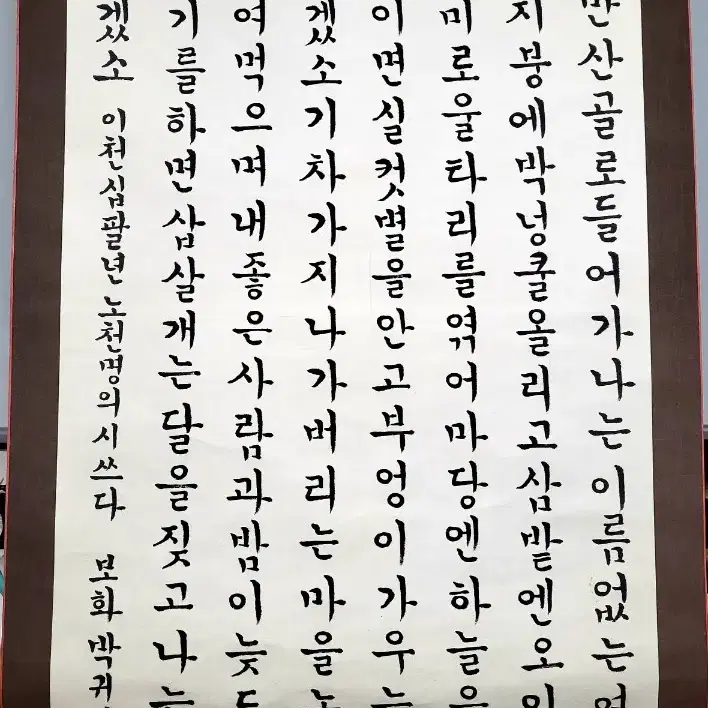 만산골로들어가나는이름없는여
지붕에박넝쿨올리고삼밭엔오이
미로울타리를엮어마당엔하늘을
이면실컷별을안고부엉이가우는
겠소기차가지나가버리는마을노
여먹으며내좋은사람과밤이늦도
기를하면삽살개는달을짖고나는
겠소 이천십팔년노천명의시쓰다 보화박귀